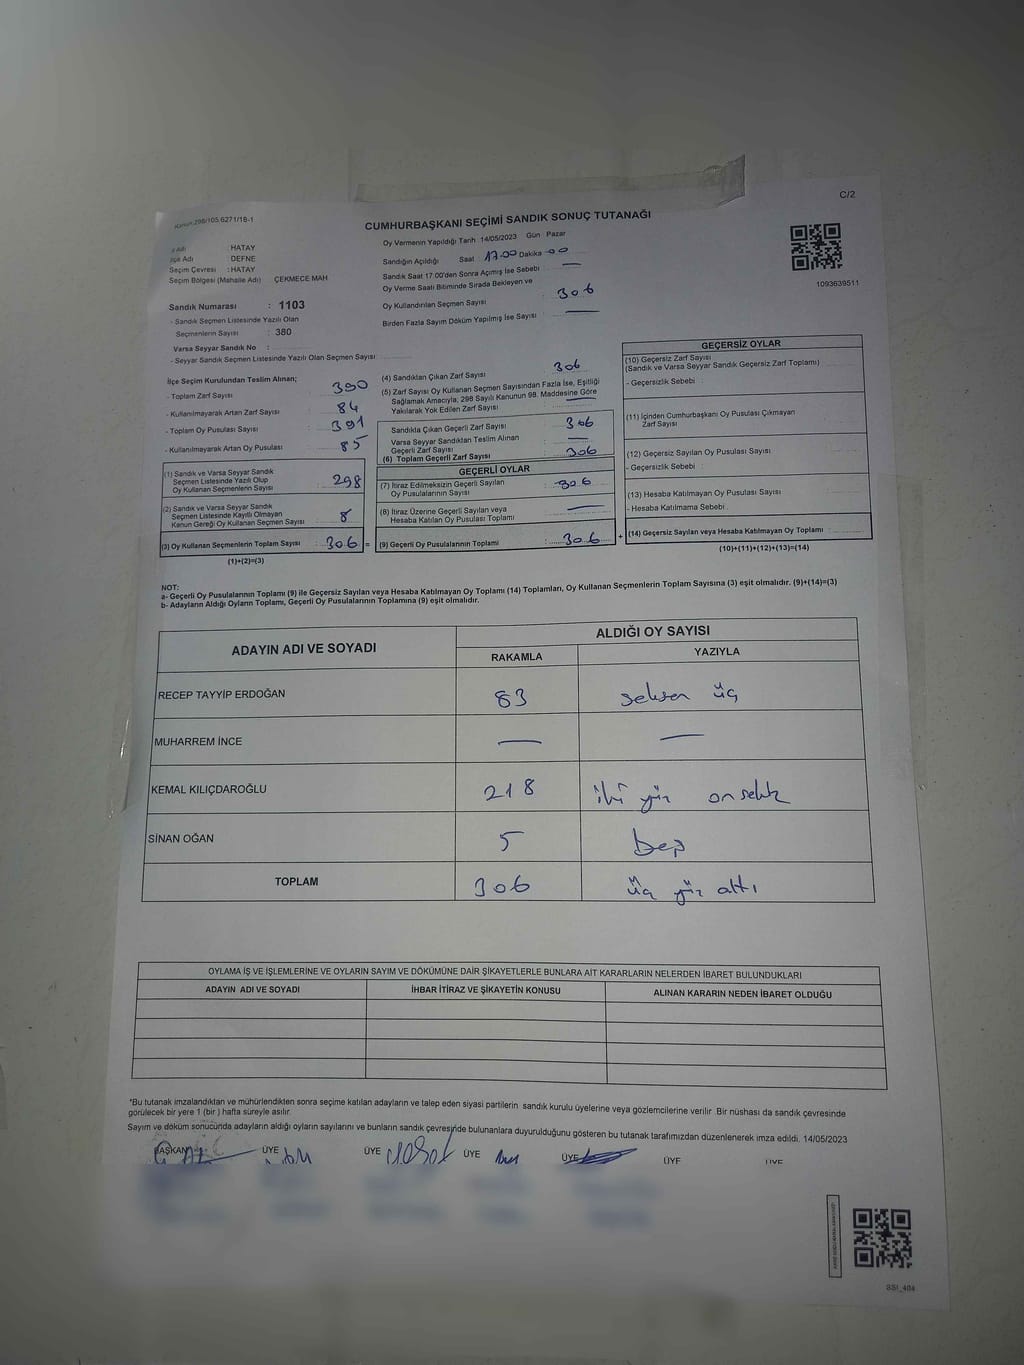 C/2
Kanun 298/105 6271/18-1
CUMHURBAŞKANI SEÇİMİ SANDIK SONUÇ TUTANAĞI
İl Adı : HATAY
İlçe Adı : DEFNE
Seçim Çevresi : HATAY
Seçim Bölgesi (Mahalle Adı) ÇEKMECE MAH
Oy Vermenin Yapıldığı Tarih 14/05/2023 Gün Pazar
Sandığın Açıldığı Saat 17.00 Dakika 00
Sandık Saat 17.00'den Sonra Açılmış İse Sebebi —
Oy Verme Saati Bitiminde Sırada Bekleyen ve
Oy Kullandırılan Seçmen Sayısı : 306
Birden Fazla Sayım Döküm Yapılmış İse Sayısı : —
1093639511
Sandık Numarası : 1103
- Sandık Seçmen Listesinde Yazılı Olan
Seçmenlerin Sayısı : 380
Varsa Seyyar Sandık No :
- Seyyar Sandık Seçmen Listesinde Yazılı Olan Seçmen Sayısı
İlçe Seçim Kurulundan Teslim Alınan;
- Toplam Zarf Sayısı : 390
- Kullanılmayarak Artan Zarf Sayısı : 84
- Toplam Oy Pusulası Sayısı : 391
- Kullanılmayarak Artan Oy Pusulası : 85
(1) Sandık ve Varsa Seyyar Sandık
Seçmen Listesinde Yazılı Olup
Oy Kullanan Seçmenlerin Sayısı : 298
(2) Sandık ve Varsa Seyyar Sandık
Seçmen Listesinde Kayıtlı Olmayan
Kanun Gereği Oy Kullanan Seçmen Sayısı : 8
(3) Oy Kullanan Seçmenlerin Toplam Sayısı : 306 =
(1)+(2)=(3)
(4) Sandıktan Çıkan Zarf Sayısı : 306
(5) Zarf Sayısı Oy Kullanan Seçmen Sayısından Fazla İse, Eşitliği
Sağlamak Amacıyla; 298 Sayılı Kanunun 98. Maddesine Göre
Yakılarak Yok Edilen Zarf Sayısı : —
Sandıkla Çıkan Geçerli Zarf Sayısı : 306
Varsa Seyyar Sandıktan Teslim Alınan
Geçerli Zarf Sayısı : —
(6) Toplam Geçerli Zarf Sayısı : 306
GEÇERLİ OYLAR
(7) İtiraz Edilmeksizin Geçerli Sayılan
Oy Pusulalarının Sayısı : 306
(8) İtiraz Üzerine Geçerli Sayılan veya
Hesaba Katılan Oy Pusulası Toplamı : —
(9) Geçerli Oy Pusulalarının Toplamı : 306 +
GEÇERSİZ OYLAR
(10) Geçersiz Zarf Sayısı
(Sandık ve Varsa Seyyar Sandık Geçersiz Zarf Toplamı) :
- Geçersizlik Sebebi :
(11) İçinden Cumhurbaşkanı Oy Pusulası Çıkmayan
Zarf Sayısı :
(12) Geçersiz Sayılan Oy Pusulası Sayısı :
- Geçersizlik Sebebi :
(13) Hesaba Katılmayan Oy Pusulası Sayısı :
- Hesaba Katılmama Sebebi :
(14) Geçersiz Sayılan veya Hesaba Katılmayan Oy Toplamı :
(10)+(11)+(12)+(13)=(14)
NOT:
a- Geçerli Oy Pusulalarının Toplamı (9) ile Geçersiz Sayılan veya Hesaba Katılmayan Oy Toplamı (14) Toplamları, Oy Kullanan Seçmenlerin Toplam Sayısına (3) eşit olmalıdır. (9)+(14)=(3)
b- Adayların Aldığı Oyların Toplamı, Geçerli Oy Pusulalarının Toplamına (9) eşit olmalıdır.
ADAYIN ADI VE SOYADI ALDIĞI OY SAYISI
RAKAMLA YAZIYLA
RECEP TAYYİP ERDOĞAN 83 seksen üç
MUHARREM İNCE — —
KEMAL KILIÇDAROĞLU 218 iki yüz onsekiz
SİNAN OĞAN 5 beş
TOPLAM 306 üç yüz altı
OYLAMA İŞ VE İŞLEMLERİNE VE OYLARIN SAYIM VE DÖKÜMÜNE DAİR ŞİKAYETLERLE BUNLARA AİT KARARLARIN NELERDEN İBARET BULUNDUKLARI
ADAYIN ADI VE SOYADI İHBAR İTİRAZ VE ŞİKAYETİN KONUSU ALINAN KARARIN NEDEN İBARET OLDUĞU
*Bu tutanak imzalandıktan ve mühürlendikten sonra seçime katılan adayların ve talep eden siyasi partilerin sandık kurulu üyelerine veya gözlemcilerine verilir. Bir nüshası da sandık çevresinde
görülecek bir yere 1 (bir) hafta süreyle asılır.
Sayım ve döküm sonucunda adayların aldığı oyların sayılarını ve bunların sandık çevresinde bulunanlara duyurulduğunu gösteren bu tutanak tarafımızdan düzenlenerek imza edildi. 14/05/2023
BAŞKAN ÜYE ÜYE ÜYE ÜYE ÜYE ÜYE